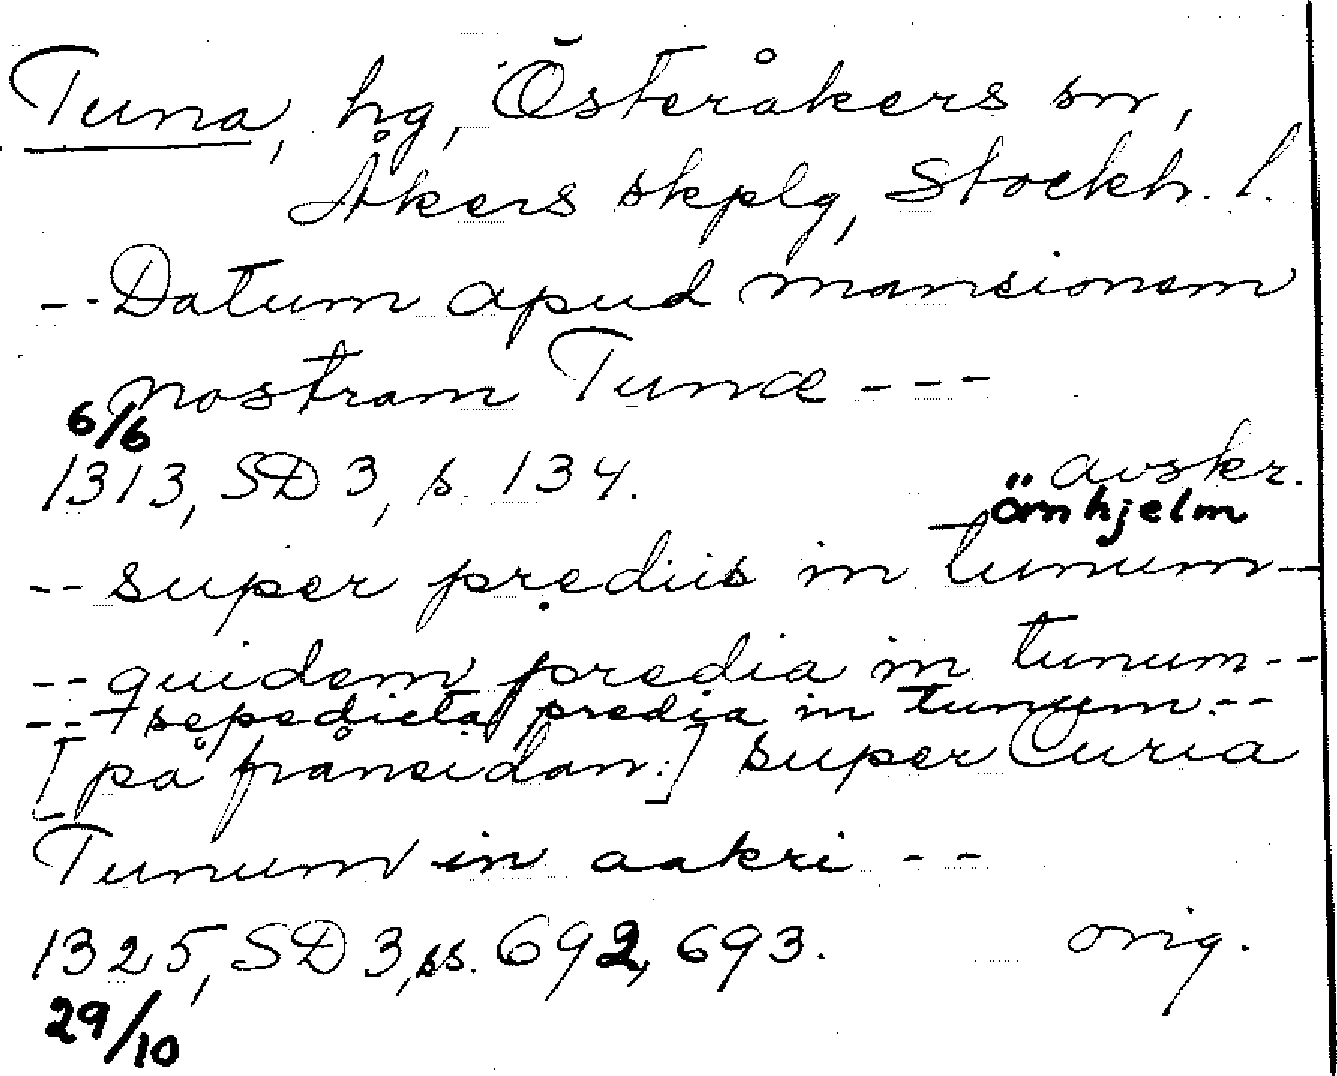 Tuna, hg, Österåkers sn,
Åkers skplg, Stockh. l.
-- Datum apud mansionem
nostram Tunæ ---
6/6
1313, SD 3, s. 134. avskr.
örnhjelm
-- super prediis in tunum --
-- quidem predia in tunum --
-- sepedicta predia in tunum --
[på framsidan:] super Curia
Tunum in aakri --
1325, SD 3, ss. 692, 693. orig.
29/10